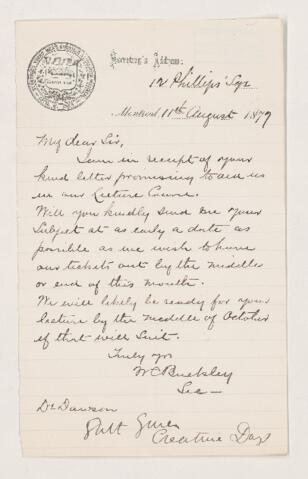 Secretary's Address:
12 Phillips' Sqr
Montreal, 11th August 1877
My dear Sir,
I am in receipt of your
kind letter promising to aid us
in our Lecture Course.
Will you kindly send me your
Subject at as early a date as
possible as we wish to have
our tickets out by the middle
or end of this month.
We will likely be ready for your
lecture by the middle of October
if that will Suit.
Truly yrs
W C Buckley
Sec—
Dr Dawson
Creative Days